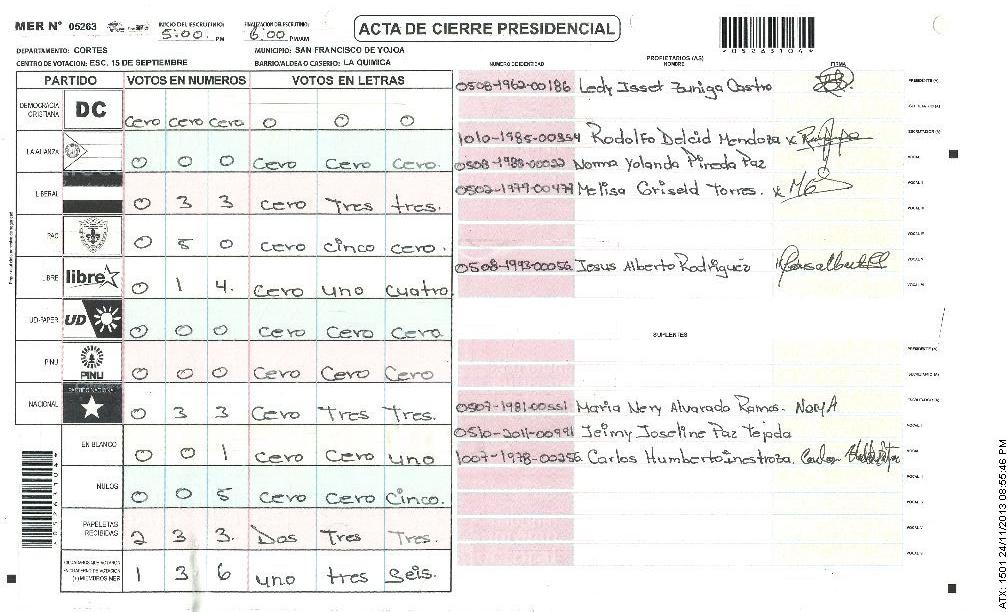 MER N° 05263
INICIO DEL ESCRUTINIO: 5:00 PM
FINALIZACION DEL ESCRUTINIO: 6:00 PM/AM
ACTA DE CIERRE PRESIDENCIAL
DEPARTAMENTO: CORTES
MUNICIPIO: SAN FRANCISCO DE YOJOA
CENTRO DE VOTACION: ESC. 15 DE SEPTIEMBRE
BARRIO/ALDEA O CASERIO: LA QUIMICA
PARTIDO VOTOS EN NUMEROS VOTOS EN LETRAS
DEMOCRACIA CRISTIANA DC cero cero cero 0 0 0
LA ALIANZA 0 0 0 cero cero cero.
LIBERAL 0 3 3 cero Tres tres.
PAC 0 5 0 cero cinco cero.
LIBRE libre 0 1 4. cero uno cuatro
UD-PAPER UD 0 0 0 cero cero cero
PINU PINU 0 0 0 cero cero cero
NACIONAL 0 3 3 cero Tres Tres.
EN BLANCO 0 0 1 cero cero uno
NULOS 0 0 5 cero cero cinco.
PAPELETAS RECIBIDAS 2 3 3. Dos Tres Tres.
(+) MIEMBROS MER 1 3 6 uno tres seis.
NUMERO DE IDENTIDAD
PROPIETARIOS (AS)
NOMBRE
FIRMA
0508-1962-00186 Ledy Isset Zuniga Castro
PRESIDENTE (A)
1010-1985-00354 Rodolfo Delcid Mendoza
0508-1988-00022 Norma Yolanda Pineda Paz
0502-1979-00479 Melisa Griseld Torres.
0508-1993-00056 Jesus Alberto Rodriguez
SUPLENTES
PRESIDENTE (A)
SECRETARIO (A)
0507-1981-00551 Maria Nery Alvarado Ramos. Nery A
0510-2011-00991 Jeimy Joseline Paz Tejada
1007-1978-00256 Carlos Humberto inestroza.
ATX: 1501 24/11/2013 08:55:46 PM